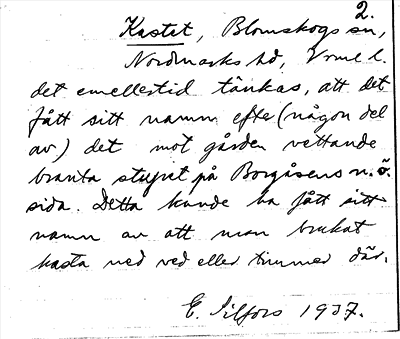 2.
Kastet, Blomskogs sn,
Nordmarks hd, Vrml l.
det emellertid tänkas, att det
fått sitt namn efter (någon del
av) det mot gården vettande
branta stupet på Borgåsens n.ö.
sida. Detta kunde ha fått sitt
namn av att man brukat
kasta ned ved eller timmer där.
E. Silfors 1937.